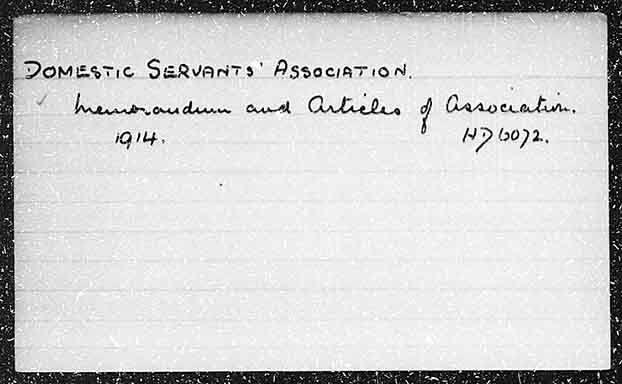 DOMESTIC SERVANTS' ASSOCIATION.
Memorandum and Articles of Association.
1914. HD6072.